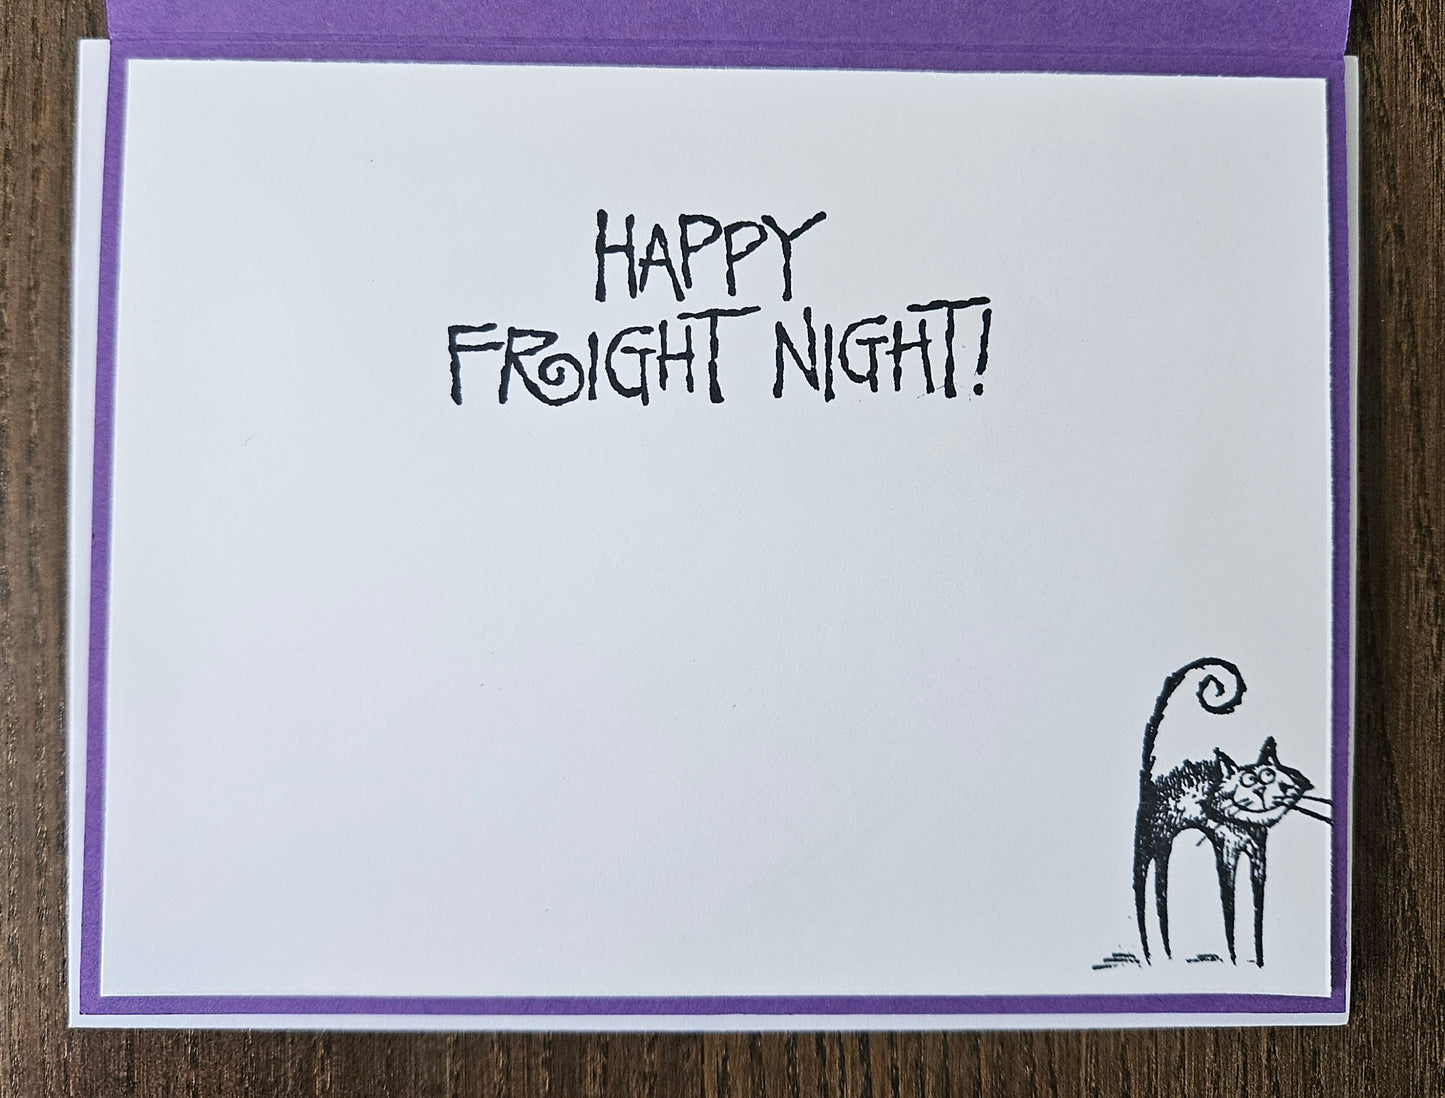 HAPPY
FRIGHT NIGHT!